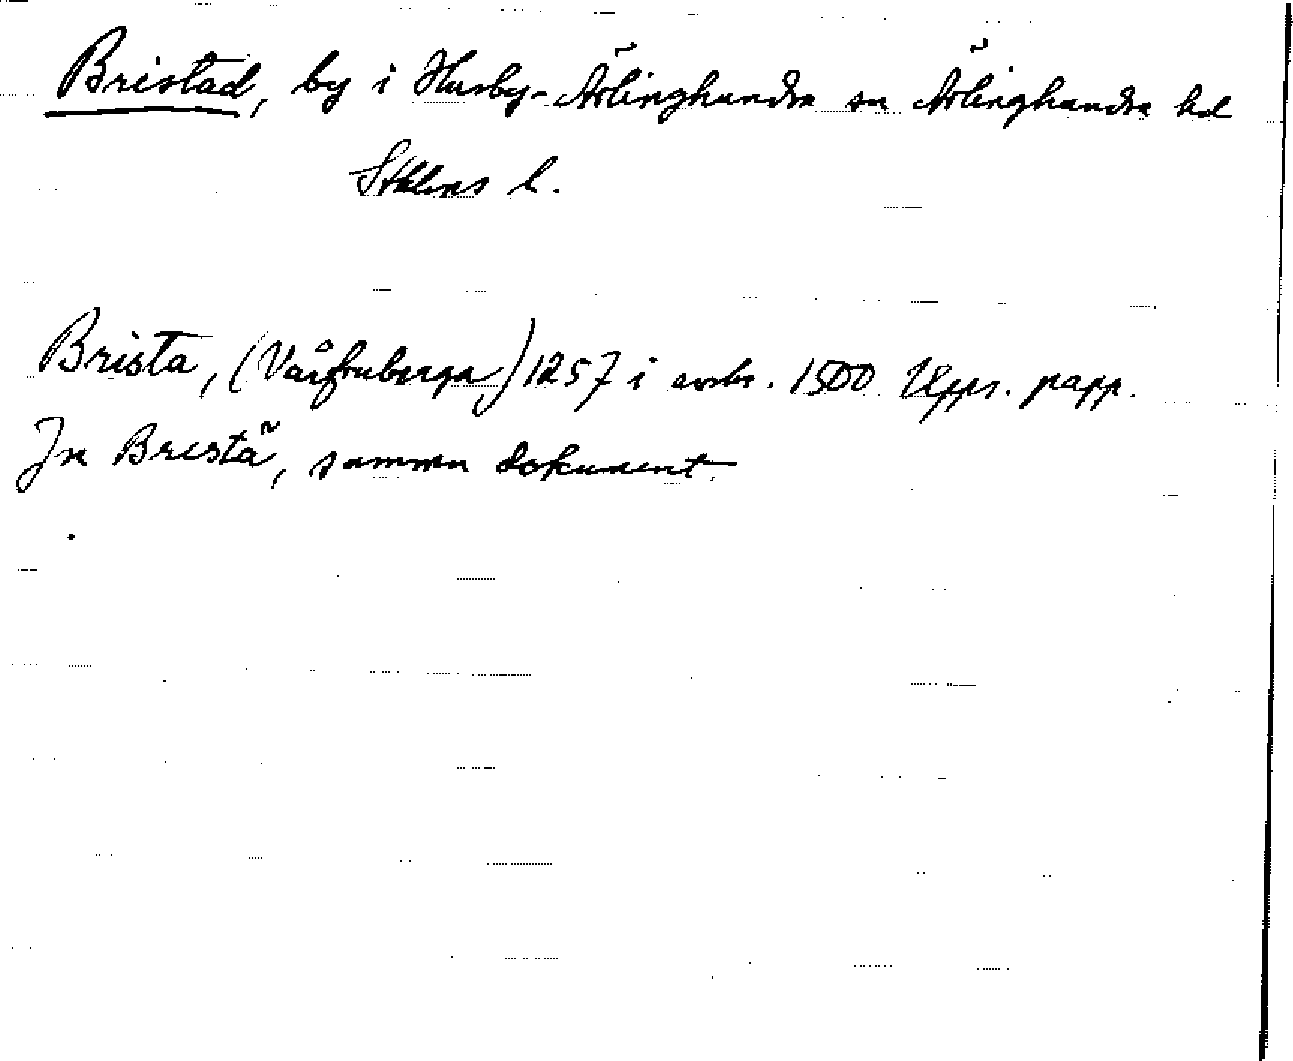 Bristad, by i Husby-Ärlinghundra sn Ärlinghundra hd
Sthlms l.
Brista, (Vårfruberga) 1257 i avskr. 1500 Upps. papp.
Jn Bristã, samma dokument.